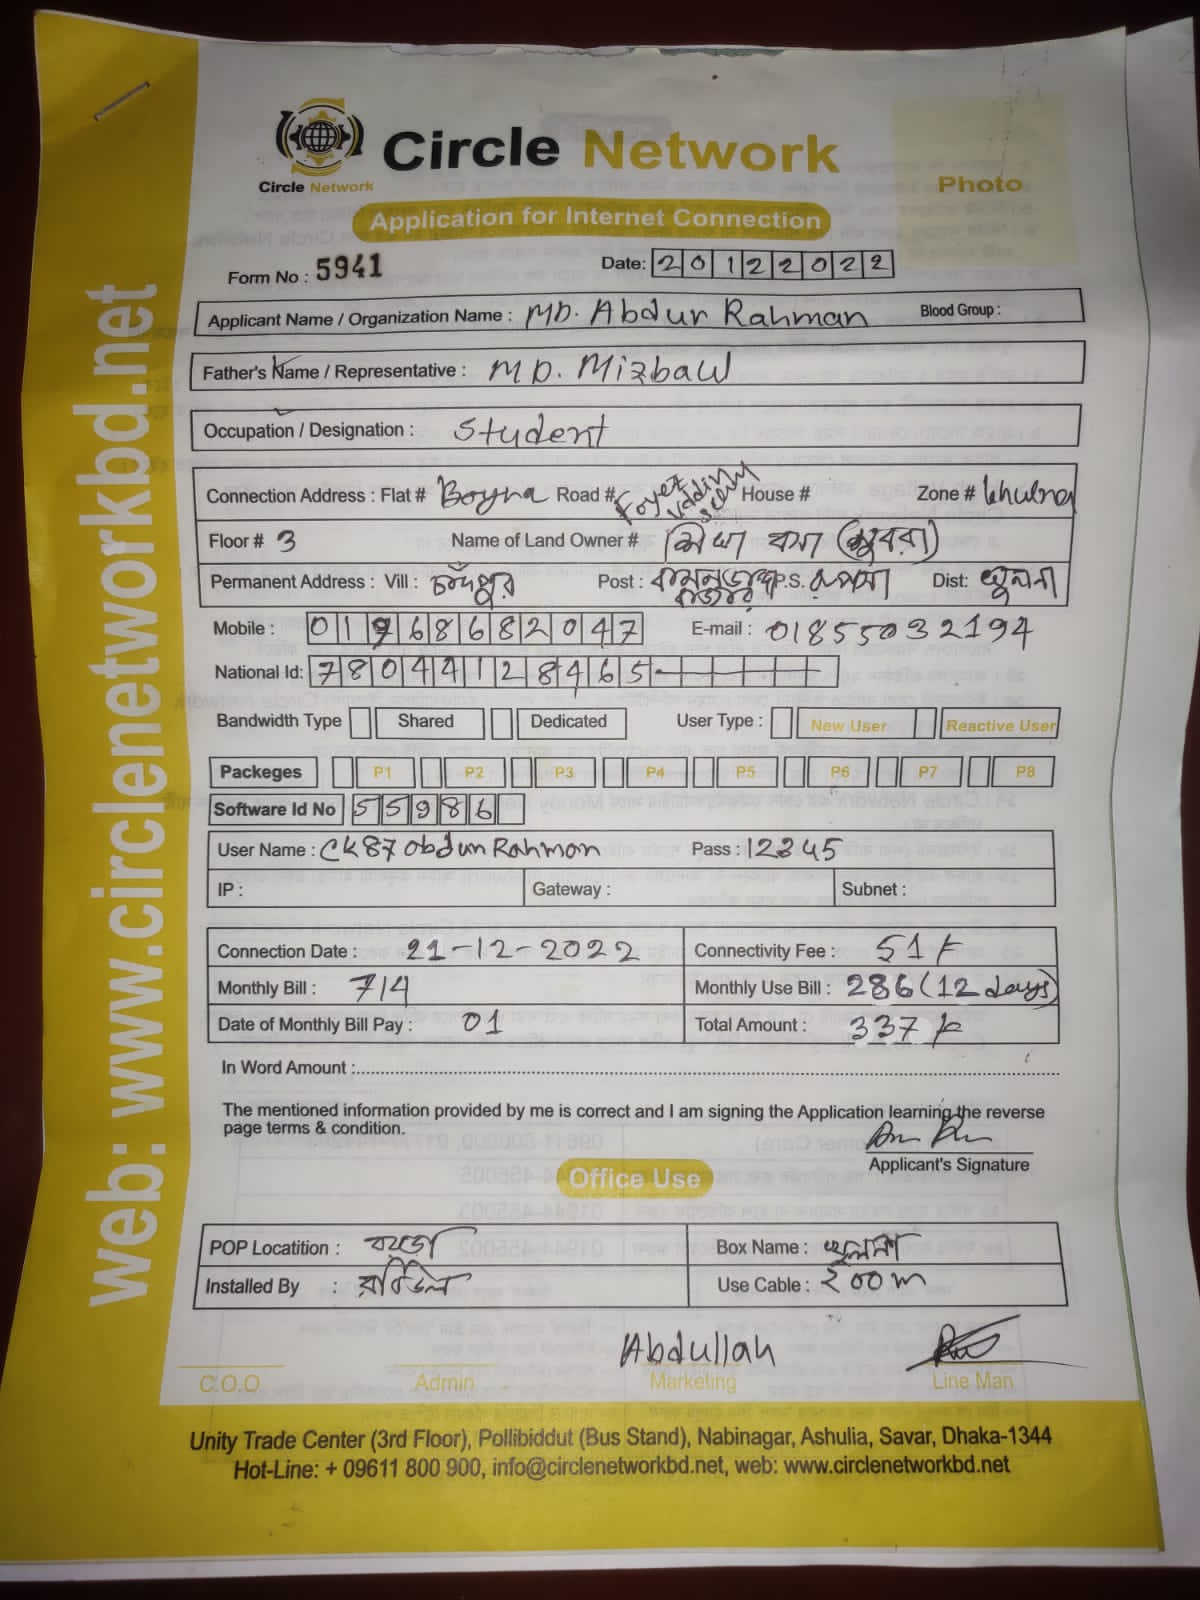 Circle Network
Circle Network
Photo
Application for Internet Connection
Form No : 5941 Date: 20122022
Applicant Name / Organization Name : MD. Abdur Rahman Blood Group :
Father's Name / Representative : MD. Mizbaul
Occupation / Designation : Student
Connection Address : Flat # Boyra Road # Foyez Uddin House # Zone # khulna
Floor # 3 Name of Land Owner #
Permanent Address : Vill : চাঁদপুর Post : P.S. রূপসা Dist: খুলনা
Mobile : 01768682047 E-mail : 01855032194
National Id: 78044128465
Bandwidth Type Shared Dedicated User Type : New User Reactive User
Packeges P1 P2 P3 P4 P5 P6 P7 P8
Software Id No 55986
User Name : Ck87abdunRahman Pass : 12345
IP : Gateway : Subnet :
Connection Date : 21-12-2022 Connectivity Fee : 51
Monthly Bill : 714 Monthly Use Bill : 286 (12 days)
Date of Monthly Bill Pay : 01 Total Amount : 337
In Word Amount :
The mentioned information provided by me is correct and I am signing the Application learning the reverse
page terms & condition.
Applicant's Signature
Office Use
POP Locatition : বয়রা Box Name : খুলনা
Installed By : Use Cable : ২00m
Abdullah
C.O.O. Admin Marketing Line Man
Unity Trade Center (3rd Floor), Pollibiddut (Bus Stand), Nabinagar, Ashulia, Savar, Dhaka-1344
Hot-Line: + 09611 800 900, info@circlenetworkbd.net, web: www.circlenetworkbd.net
web: www.circlenetworkbd.net